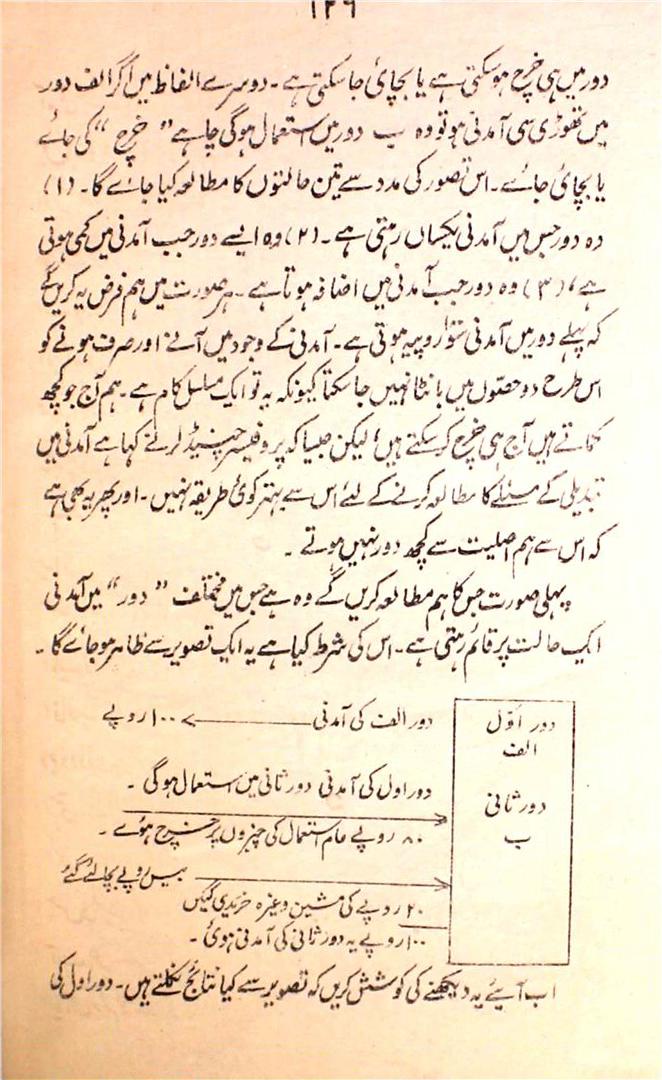 ۱۲۶
دور میں ہی خرچ ہوسکتی ہے یا بچائی جاسکتی ہے۔ دوسرے الفاظ میں اگر الف دور
میں تھوڑی سی آمدنی ہو تو وہ ب دور میں استعمال ہوگی چاہے ”خرچ“ کی جائے
یا بچائی جائے۔ اس تصور کی مدد سے تین حالتوں کا مطالعہ کیا جائے گا۔ (۱)
وہ دور جس میں آمدنی یکساں رہتی ہے۔ (۲) وہ ایسے دور جب آمدنی میں کمی ہوتی
ہے، (۳) وہ دور جب آمدنی میں اضافہ ہوتا ہے۔ ہر صورت میں ہم فرض یہ کریں گے
کہ پہلے دور میں آمدنی سَو روپیہ ہوتی ہے۔ آمدنی کے وجود میں آنے اور صرف ہونے کو
اس طرح دو حصّوں میں بانٹا نہیں جاسکتا کیونکہ یہ تو ایک مسلسل کام ہے۔ ہم آج جو کچھ
کماتے ہیں آج ہی خرچ کرسکتے ہیں، لیکن جیسا کہ پروفیسر چنیڈلر نے کہا ہے آمدنی میں
تبدیلی کے مسئلے کا مطالعہ کرنے کے لئے اس سے بہتر کوئی طریقہ نہیں۔ اور پھر یہ بھی ہے
کہ اس سے ہم اصلیت سے کچھ دور نہیں ہوتے ۔
پہلی صورت جس کا ہم مطالعہ کریں گے وہ ہے جس میں مختلف ”دور“ میں آمدنی
ایک حالت پر قائم رہتی ہے۔ اس کی شرط کیا ہے یہ ایک تصویر سے ظاہر ہو جائے گا ۔
دور اوّل
الف
دور الف کی آمدنی
۱۰۰ روپے
دور ثانی
ب
دور اول کی آمدنی دور ثانی میں استعمال ہوگی ۔
۸۰ روپے عام استعمال کی چیزوں پر خرچ ہوئے ۔
بیس روپے بچالئے گئے
۲۰ روپے کی مشین وغیرہ خریدی گئیں
۱۰۰ روپے یہ دور ثانی کی آمدنی ہوئی ۔
اب آئیے یہ دیکھنے کی کوشش کریں کہ تصویر سے کیا نتائج نکلتے ہیں۔ دور اول کی